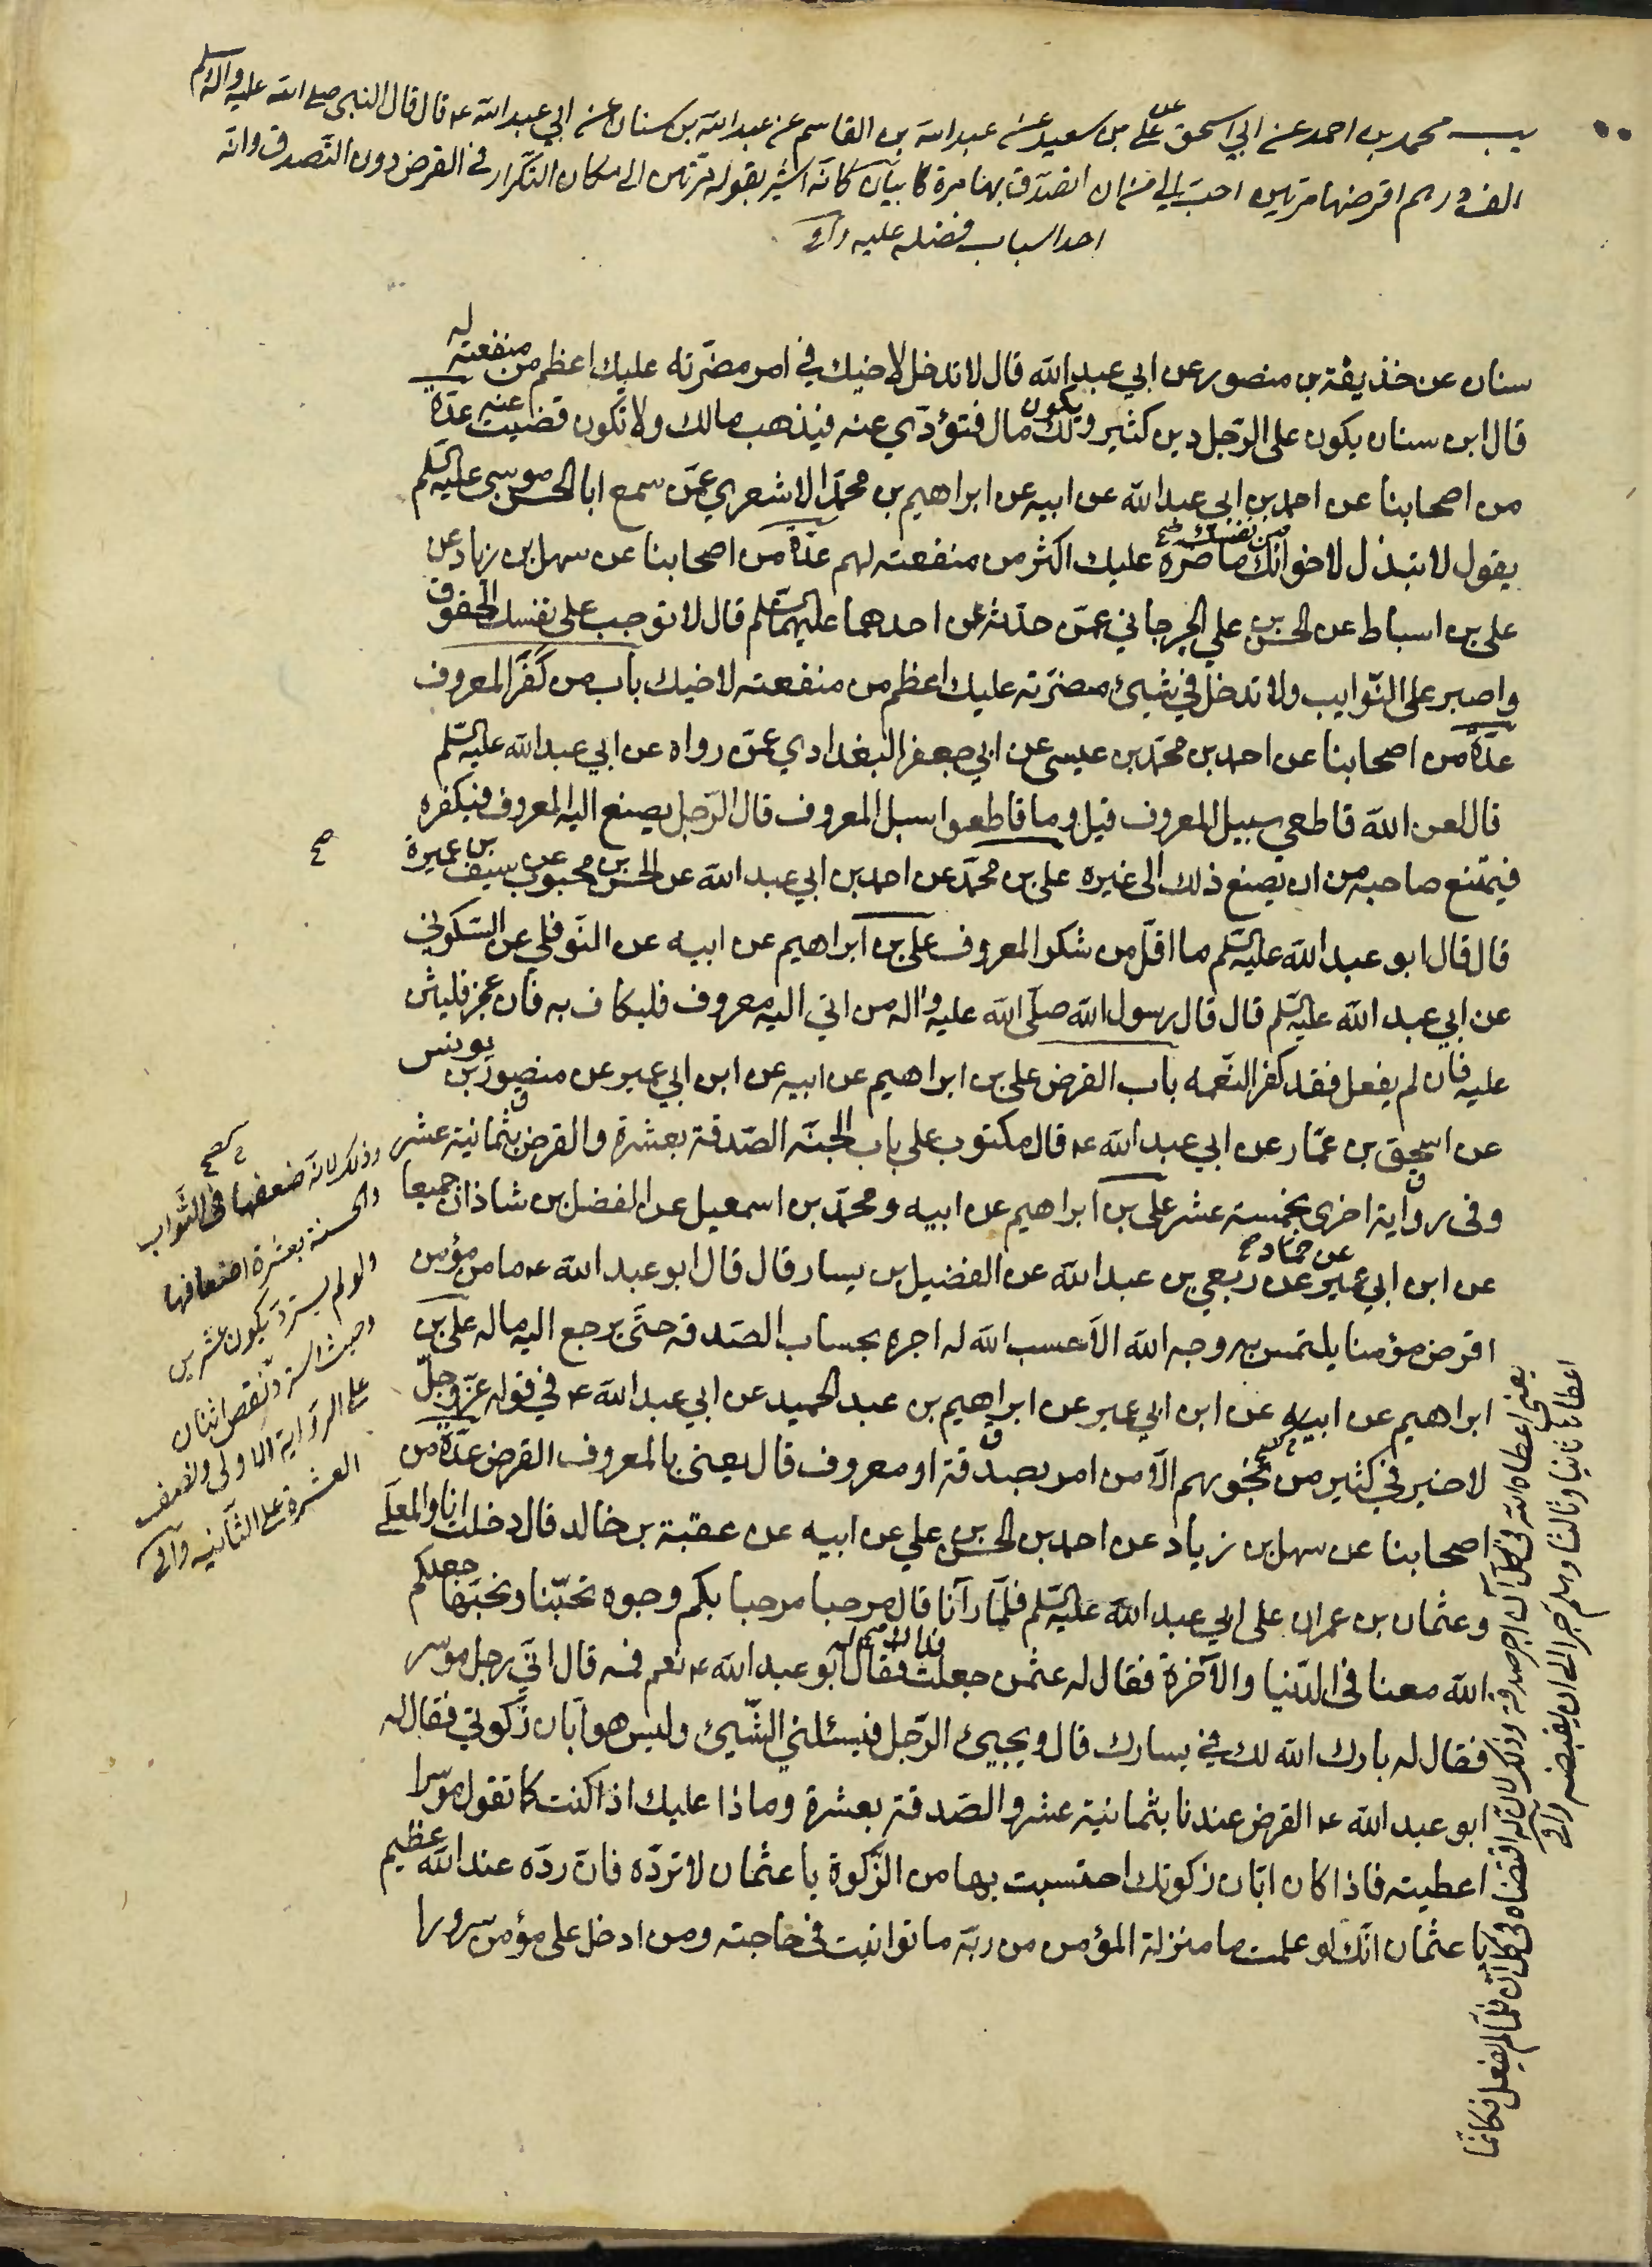 يب محمد بن احمد عن ابي اسحق عن علي بن سعيد عن عبد الله بن القاسم عن عبد الله بن سنان عن ابي عبد الله ع قال قال النبي صلى الله عليه واله وسلم
الف درهم اقرضها مرتين احب الي من ان اتصدق بها مرة كا بيان كانه اشير بقوله مرتين الى مكان التكرار في القرض دون التصدق وانه
احد اسباب فضله عليه وافي
سنان عن حذيفة بن منصور عن ابي عبد الله قال لا تدخل لاخيك في امر مضرّته عليك اعظم من منفعته له
قال ابن سنان يكون على الرّجل دين كثير ويكون لك مال فتؤدّي عنه فيذهب مالك ولا تكون قضيت عنه عدّة
من اصحابنا عن احمد بن ابي عبد الله عن ابيه عن ابراهيم بن محمّد الاشعري عمّن سمع ابا الحسن موسى عليه السلم
يقول لا تبذل لاخوانك من نفسك ما ضرّه عليك اكثر من منفعته لهم عدّة من اصحابنا عن سهل بن زياد عن
علي بن اسباط عن الحسن بن علي الجرجاني عمّن حدّثه عن احدهما عليهما السّلم قال لا توجب على نفسك الحقوق
واصبر على النّوايب ولا تدخل في شيئ مضرّته عليك اعظم من منفعته لاخيك باب من كفر المعروف
عدّة من اصحابنا عن احمد بن محمّد بن عيسى عن ابي جعفر البغدادي عمّن رواه عن ابي عبد الله عليه السّلم
قال لعن الله قاطعي سبيل المعروف قيل وما قاطعوا سبل المعروف قال الرّجل يصنع اليه المعروف فيكفره
فيمتنع صاحبه من ان يصنع ذلك الى غيره علي بن محمّد عن احمد بن ابي عبد الله عن الحسن بن محبوب عن سيف بن عميرة
صح
قال قال ابو عبد الله عليه السّلم ما اقلّ من شكر المعروف علي بن ابراهيم عن ابيه عن النّوفلي عن السّكوني
عن ابي عبد الله عليه السّلم قال قال رسول الله صلّى الله عليه واله من اتي اليه معروف فليكاف به فان عجز فليثن
عليه فان لم يفعل فقد كفر النّعمه باب القرض علي بن ابراهيم عن ابيه عن ابن ابي عمير عن منصور بن يونس
عن اسحق بن عمّار عن ابي عبد الله ع قال مكتوب على باب الجنّه الصّدقة بعشرة والقرض بثمانية عشر
وفي رواية اخرى بخمسة عشر علي بن ابراهيم عن ابيه ومحمّد بن اسمعيل عن الفضل بن شاذان جميعا
عن ابن ابي عمير عن حماد صح عن ربعي بن عبد الله عن الفضيل بن يسار قال قال ابو عبد الله ع ما من مؤمن
اقرض مؤمنا يلتمس به وجه الله الّا حسب الله له اجره بحساب الصّدقة حتّى يرجع اليه ماله علي بن
ابراهيم عن ابيه عن ابن ابي عمير عن ابراهيم بن عبد الحميد عن ابي عبد الله ع في قوله عزّ وجلّ
لا خير في كثير من نجويهم الّا من امر بصدقة او معروف قال يعني بالمعروف القرض عدّة من
اصحابنا عن سهل بن زياد عن احمد بن الحسن بن علي عن ابيه عن عقبة بن خالد قال دخلت انا والمعلّى
وعثمان بن عمران على ابي عبد الله عليه السّلم فلمّا رآنا قال مرحبا مرحبا بكم وجوه تحبّنا ونحبّها جعلكم
الله معنا في الدّنيا والآخرة فقال له عثمن جعلت فداك فقال له ابو عبد الله ع نعم فمه قال انّي رجل موسر
فقال له بارك الله لك في يسارك قال ويجيئ الرّجل فيسئلني الشّيئ وليس هو ابّان زكوتي فقال له
ابو عبد الله ع القرض عندنا بثمانية عشر والصّدقة بعشرة وماذا عليك اذا كنت كما تقول موسرا
اعطيته فاذا كان ابّان زكوتك احتسبت بها من الزّكوة يا عثمان لا تردّه فانّ ردّه عند الله عظيم
يا عثمان انّك لو علمت ما منزلة المؤمن من ربّه ما توانيت في حاجته ومن ادخل على مؤمن سرورا
وذلك لانه ضعفها في الثواب
والحسنة بعشرة اضعافها
ولو لم يسترد يكون عشرين
وحيث استرد نقص اثنان
على الرواية الاولى ونصف
العشرة على الثانيه وافي
يعني اعطاه الله في كل آن اجر صدقة وذلك لان له اقتضاه في كل آن فلما لم يفعل فكانما
اعطاها ثانيا وثالثا وهلم جرا الى ان يقبضه وافي